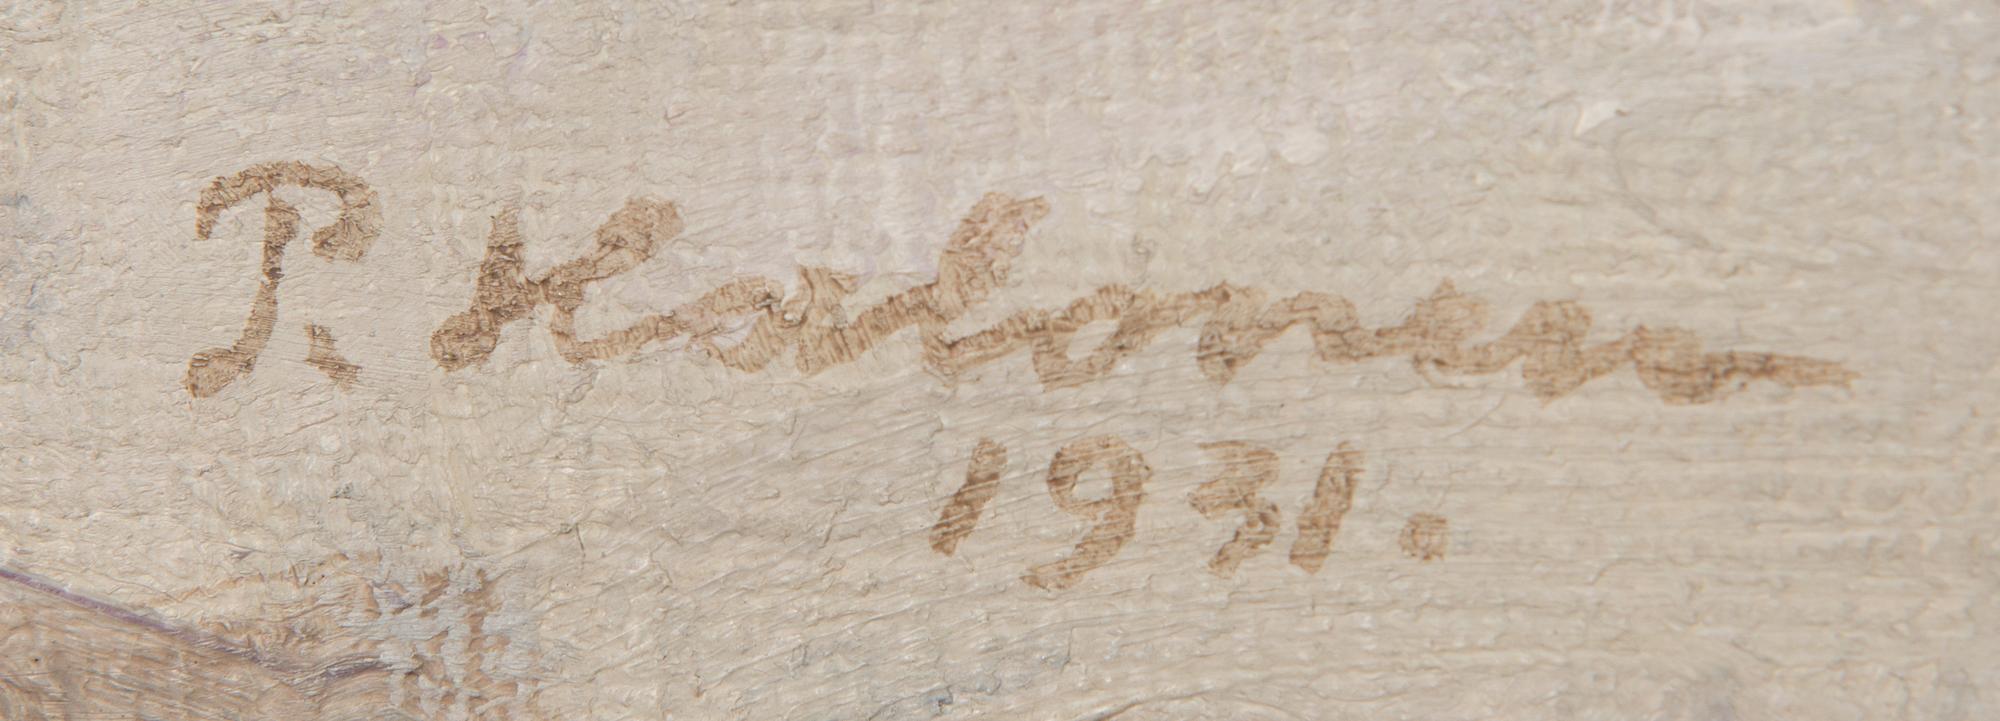 P. Halonen
1931.